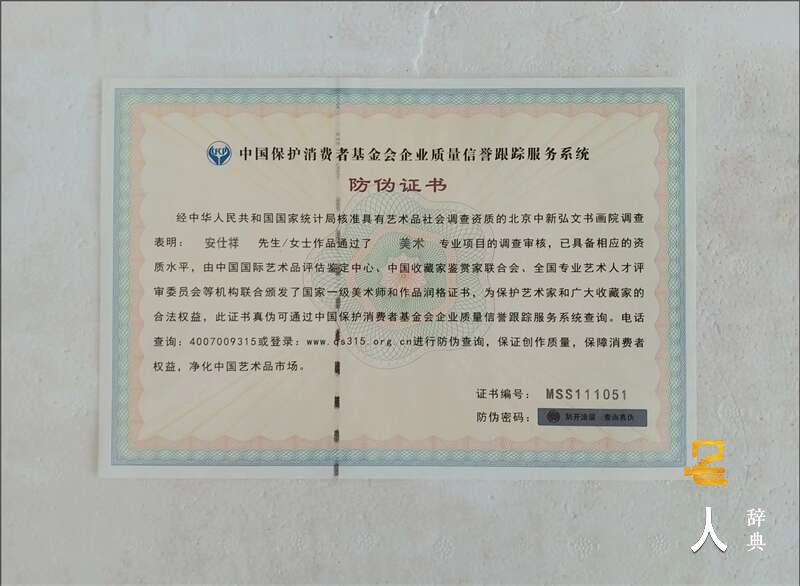 中国保护消费者基金会企业质量信誉跟踪服务系统
防伪证书
经中华人民共和国国家统计局核准具有艺术品社会调查资质的北京中新弘文书画院调查
表明： 安仕祥 先生/女士作品通过了 美术 专业项目的调查审核，已具备相应的资
质水平，由中国国际艺术品评估鉴定中心、中国收藏家鉴赏家联合会、全国专业艺术人才评
审委员会等机构联合颁发了国家一级美术师和作品润格证书，为保护艺术家和广大收藏家的
合法权益，此证书真伪可通过中国保护消费者基金会企业质量信誉跟踪服务系统查询。电话
查询：4007009315或登录：www.qs315.org.cn进行防伪查询，保证创作质量，保障消费者
权益，净化中国艺术品市场。
证书编号： MSS111051
防伪密码： 刮开涂层 查询真伪
名
人
辞典